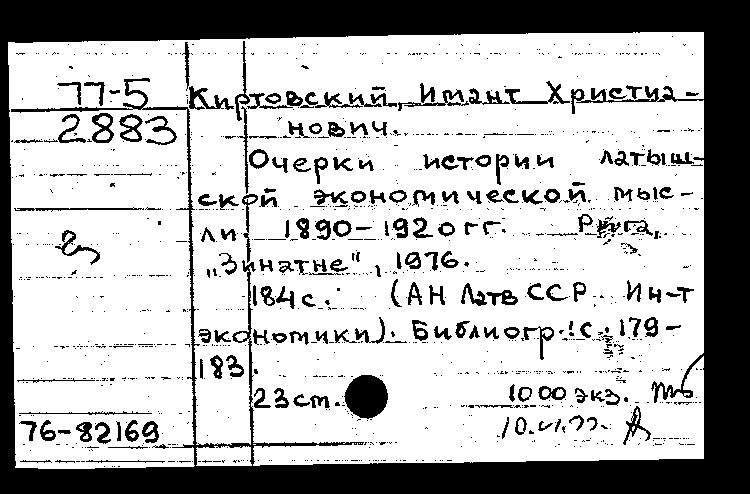 77-5
2883
Киртовский, Имант Христиа-
нович.
Очерки истории латыш-
ской экономической мыс-
ли. 1890-1920 гг. Рига,
„Зинатне", 1976.
184 с. (АН Латв ССР. Ин-т
экономики). Библиогр.: с. 179-
183.
23 см.
1000 экз.
76-82169